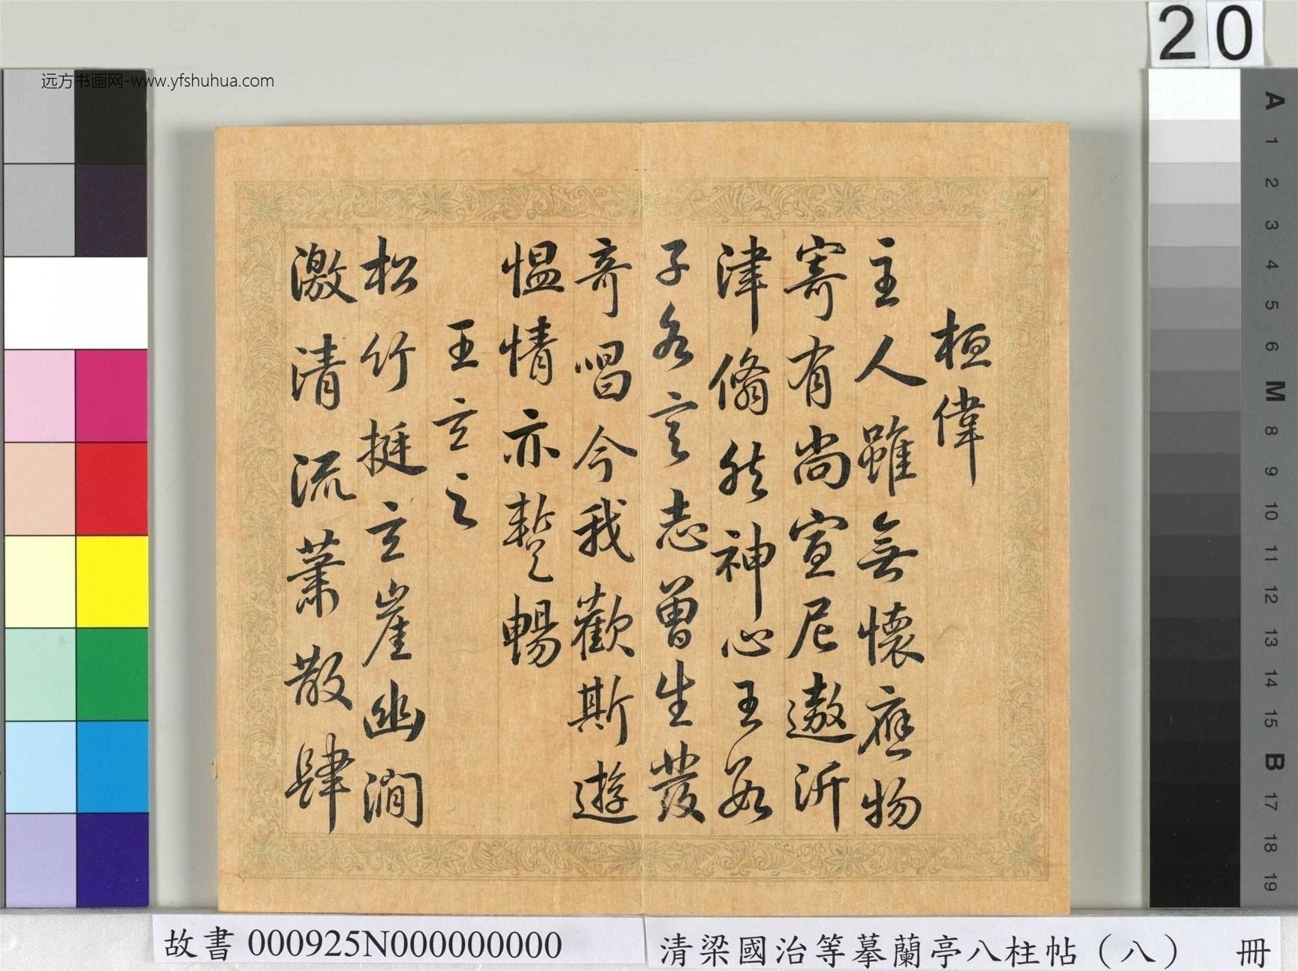 远方书画网-www.yfshuhua.com
20
桓偉
主人雖無懷應物
寄有尚宣尼遨沂
津翛然神心王數
子各言志曾生發
奇唱今我歡斯遊
慍情亦蹔暢
王玄之
松竹挺玄崖幽澗
激清流蕭散肆
A 1 2 3 4 5 6 M 8 9 10 11 12 13 14 15 B 17 18 19
故書 000925N000000000
清梁國治等摹蘭亭八柱帖（八） 冊